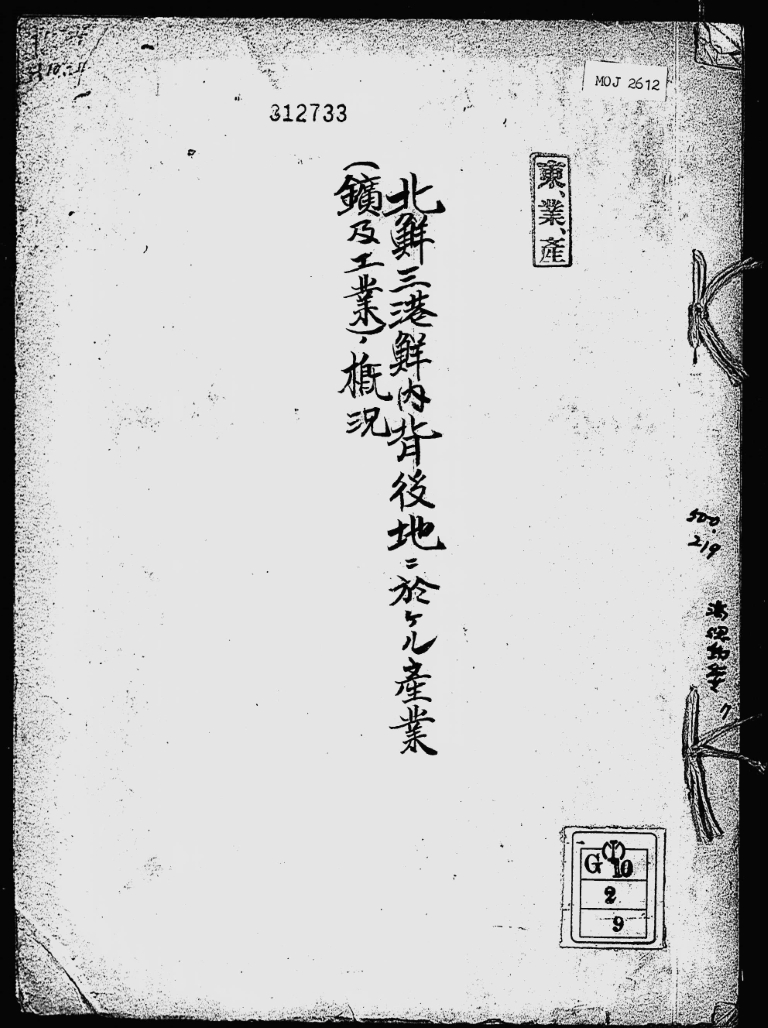 MOJ 2612
312733
東、業、産
北鮮三港鮮内背後地ニ於ケル産業
(鑛及工業)ノ概況
500.
219
G 10
2
9